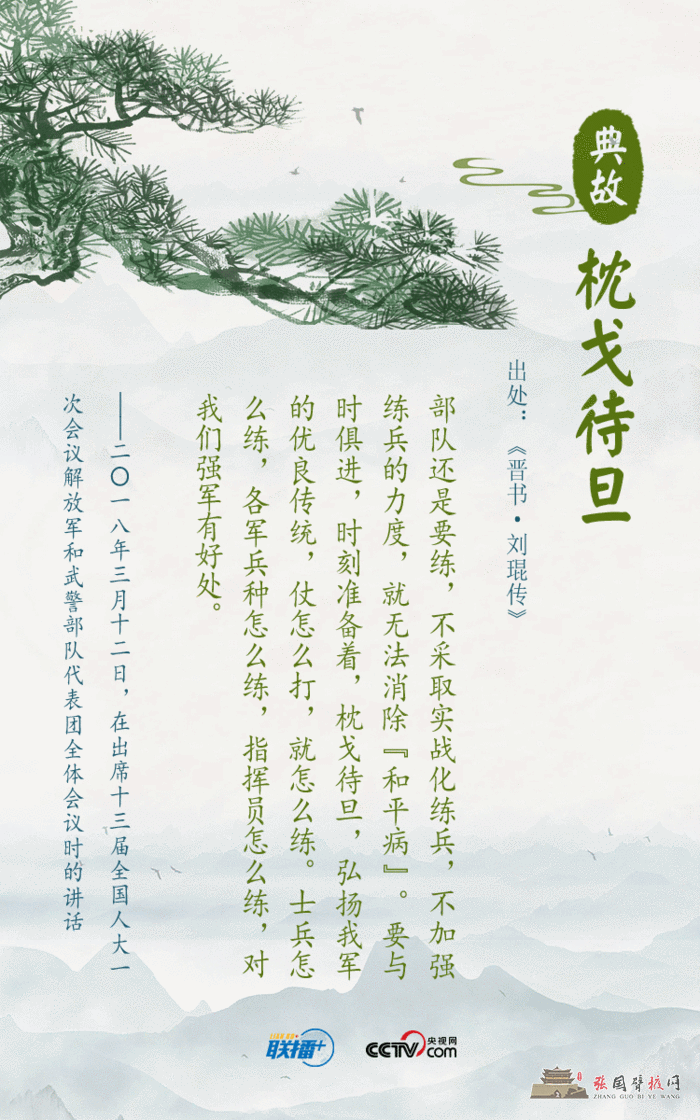 典故
枕戈待旦
出处：《晋书·刘琨传》
部队还是要练，不采取实战化练兵，不加强
练兵的力度，就无法消除『和平病』。要与
时俱进，时刻准备着，枕戈待旦，弘扬我军
的优良传统，仗怎么打，就怎么练。士兵怎
么练，各军兵种怎么练，指挥员怎么练，对
我们强军有好处。
——二〇一八年三月十二日，在出席十三届全国人大一
次会议解放军和武警部队代表团全体会议时的讲话
联播+
CCTV.com 央视网
张国臂掖网
ZHANG GUO BI YE WANG